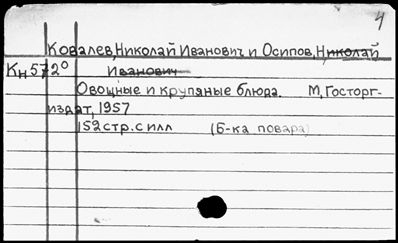 4
Ковалев, Николай Иванович и Осипов, Николай
Кн572° Иванович
Овощные и крупяные блюда. М, Госторг-
издат, 1957
152 стр. с илл (Б-ка повара)